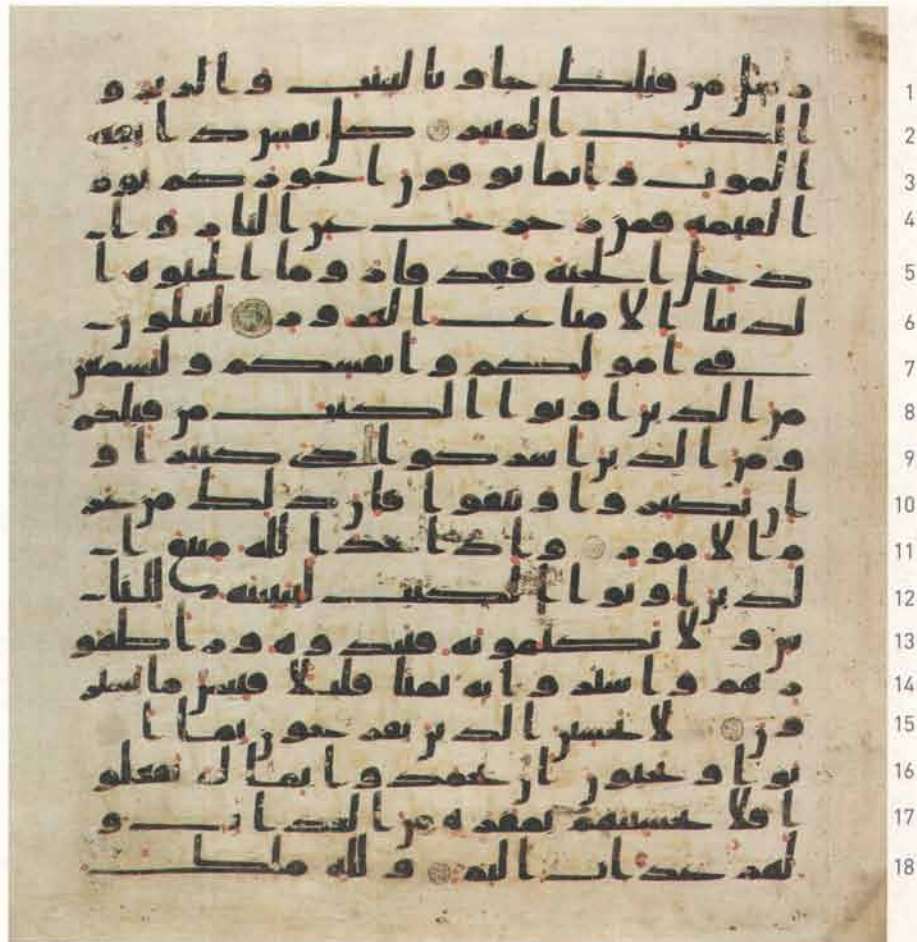 1 رسل من قبلك جاو بالبينت و الزبر و
2 الكتب المنير كل نفس ذائقة
3 الموت و انما توفون اجوركم يوم
4 القيمة فمن زحزح عن النار و ا
5 دخل الجنة فقد فاز و ما الحيوة ا
6 لدنيا الا متاع الغرور لتبلون
7 في امولكم و انفسكم و لتسمعن
8 من الذين اوتوا الكتب من قبلكم
9 و من الذين اشركوا اذى كثيرا و
10 ان تصبروا و تتقوا فان ذلك من عز
11 م الامور و اذ اخذ الله ميثق ا
12 لذين اوتوا الكتب لتبيننه للنا
13 س و لا تكتمونه فنبذوه ورا ظهو
14 رهم و اشتروا به ثمنا قليلا فبئس ما يشتر
15 ون لا تحسبن الذين يفرحون بما ا
16 توا و يحبون ان يحمدوا بما لم يفعلو
17 ا فلا تحسبنهم بمفازة من العذاب و
18 لهم عذاب اليم و لله ملك